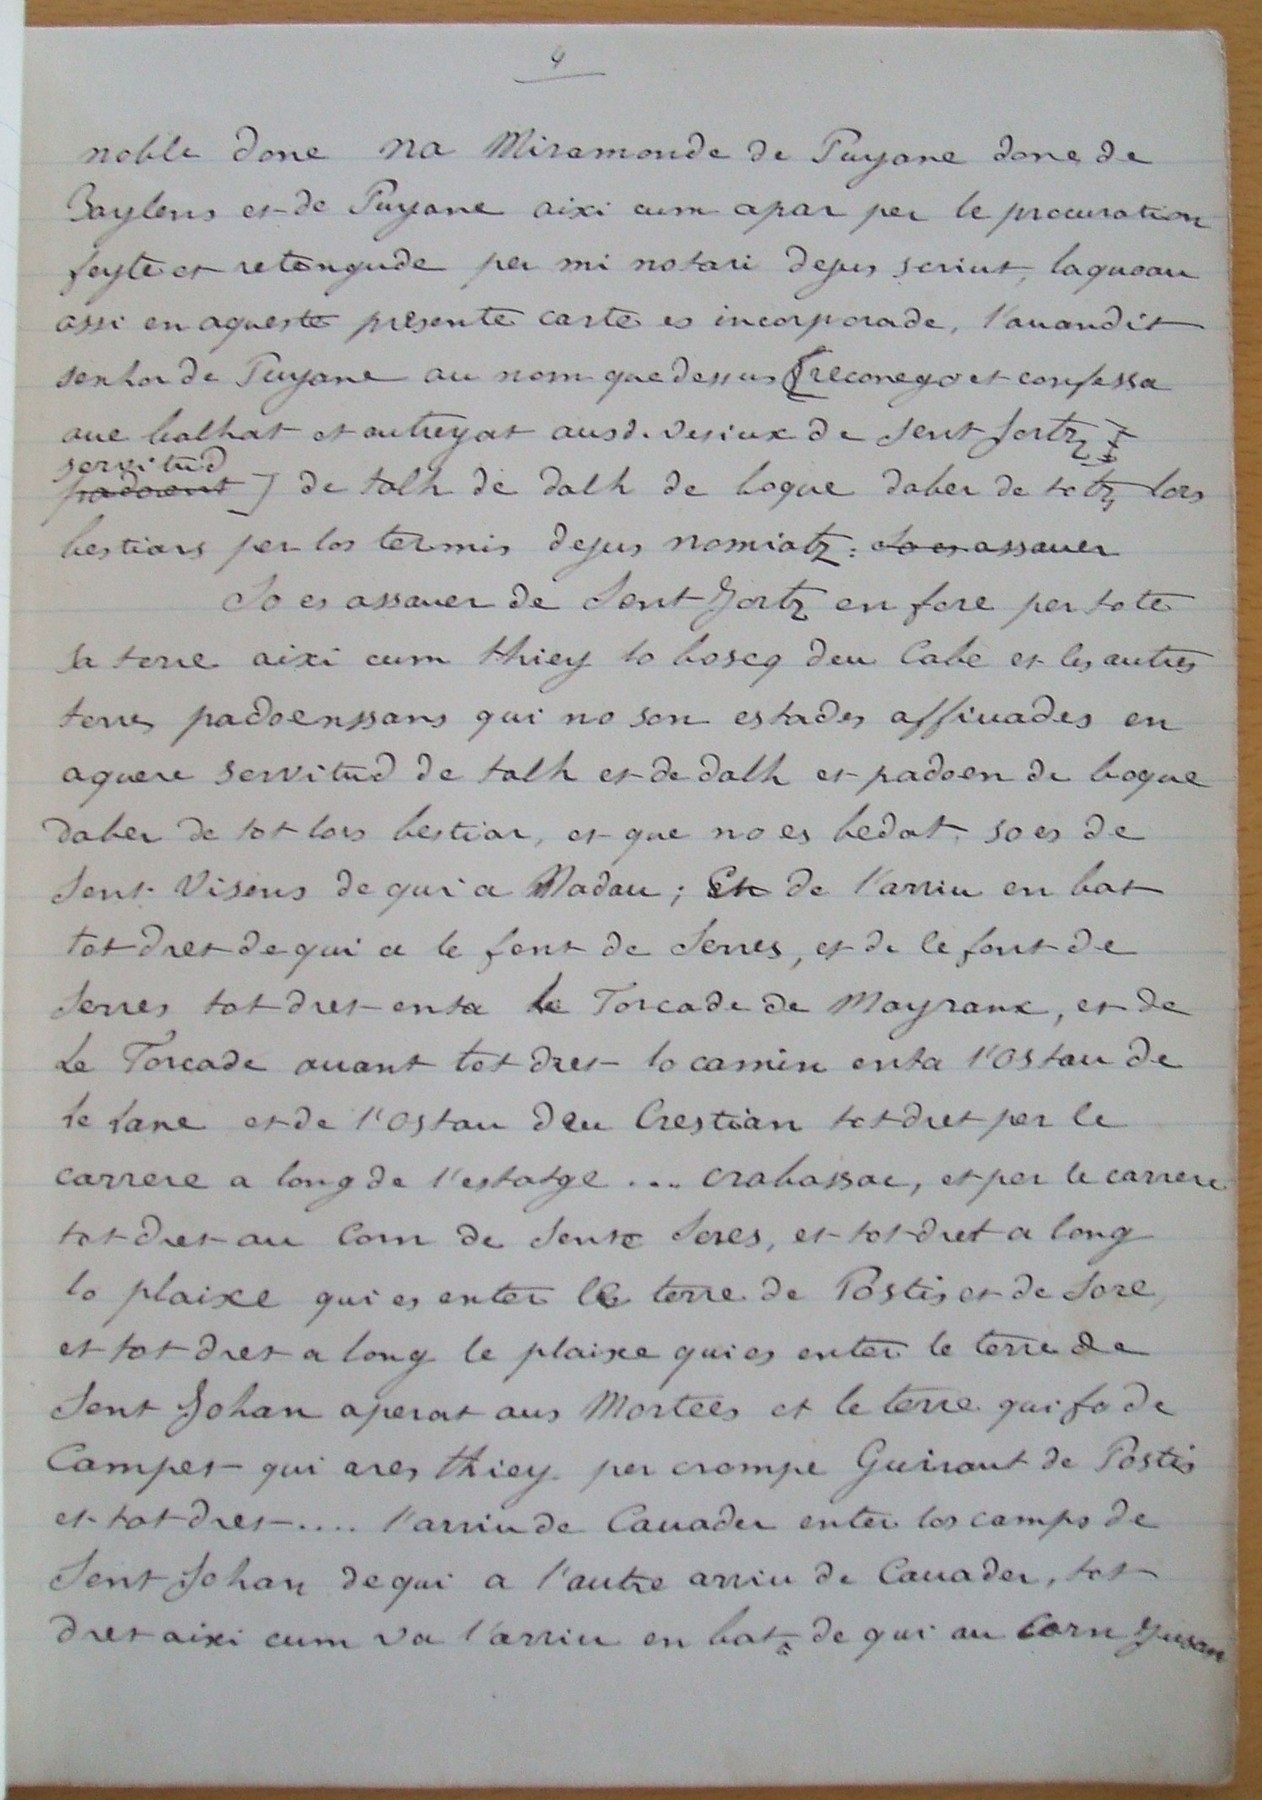 4
noble done na Miramonde de Puyane done de
Baylens et de Puyane aixi cum apar per le procuration
feyte et retengude per mi notari dejus scriut, laquoau
assi en aqueste presente carte es incorporade, l'auandit
senhor de Puyane au nom que dessus [reconego et confessa
aue balhat et autreyat ausd. vesiux de Sent Jortz
servitud
padoent ] de talh de dalh de boque daber de totz lors
bestiars per los termis dejus nomiatz: So es assauer
So es assauer de Sent Jortz en fore per tote
sa terre aixi cum thiey lo boscq deu Cabe et les autres
terres padoenssans qui no son estades affiuades en
aquere servitud de talh et de dalh et padoen de boque
daber de tot lors bestiar, et que no es bedat. so es de
Sent Visens de qui a Madau; Et de l'arriu en bat
tot dret de qui a le font de Serres, et de le font de
Serres tot dret enta le Torcade de Mayranx, et de
Le Torcade auant tot dret lo camin enta l'Ostau de
Le Lane et de l'Ostau deu Crestian tot dret per le
carrere a long de l'estatge ... crabassac, et per le carrere
tot dret au Corn de Sente Seres, et tot dret a long
lo plaixe qui es enter le terre de Postis et de Sore,
et tot dret a long le plaixe qui es enter le terre de
Sent Johan aperat aus Mortees et le terre qui fo de
Campet qui ares thiey per crompe Guiraut de Postis
et tot dret .... l'arriu de Cauader enter los camps de
Sent Johan de qui a l'autre arriu de Cauader, tot
dret aixi cum va l'arriu en bat, de qui au Corn Jusan